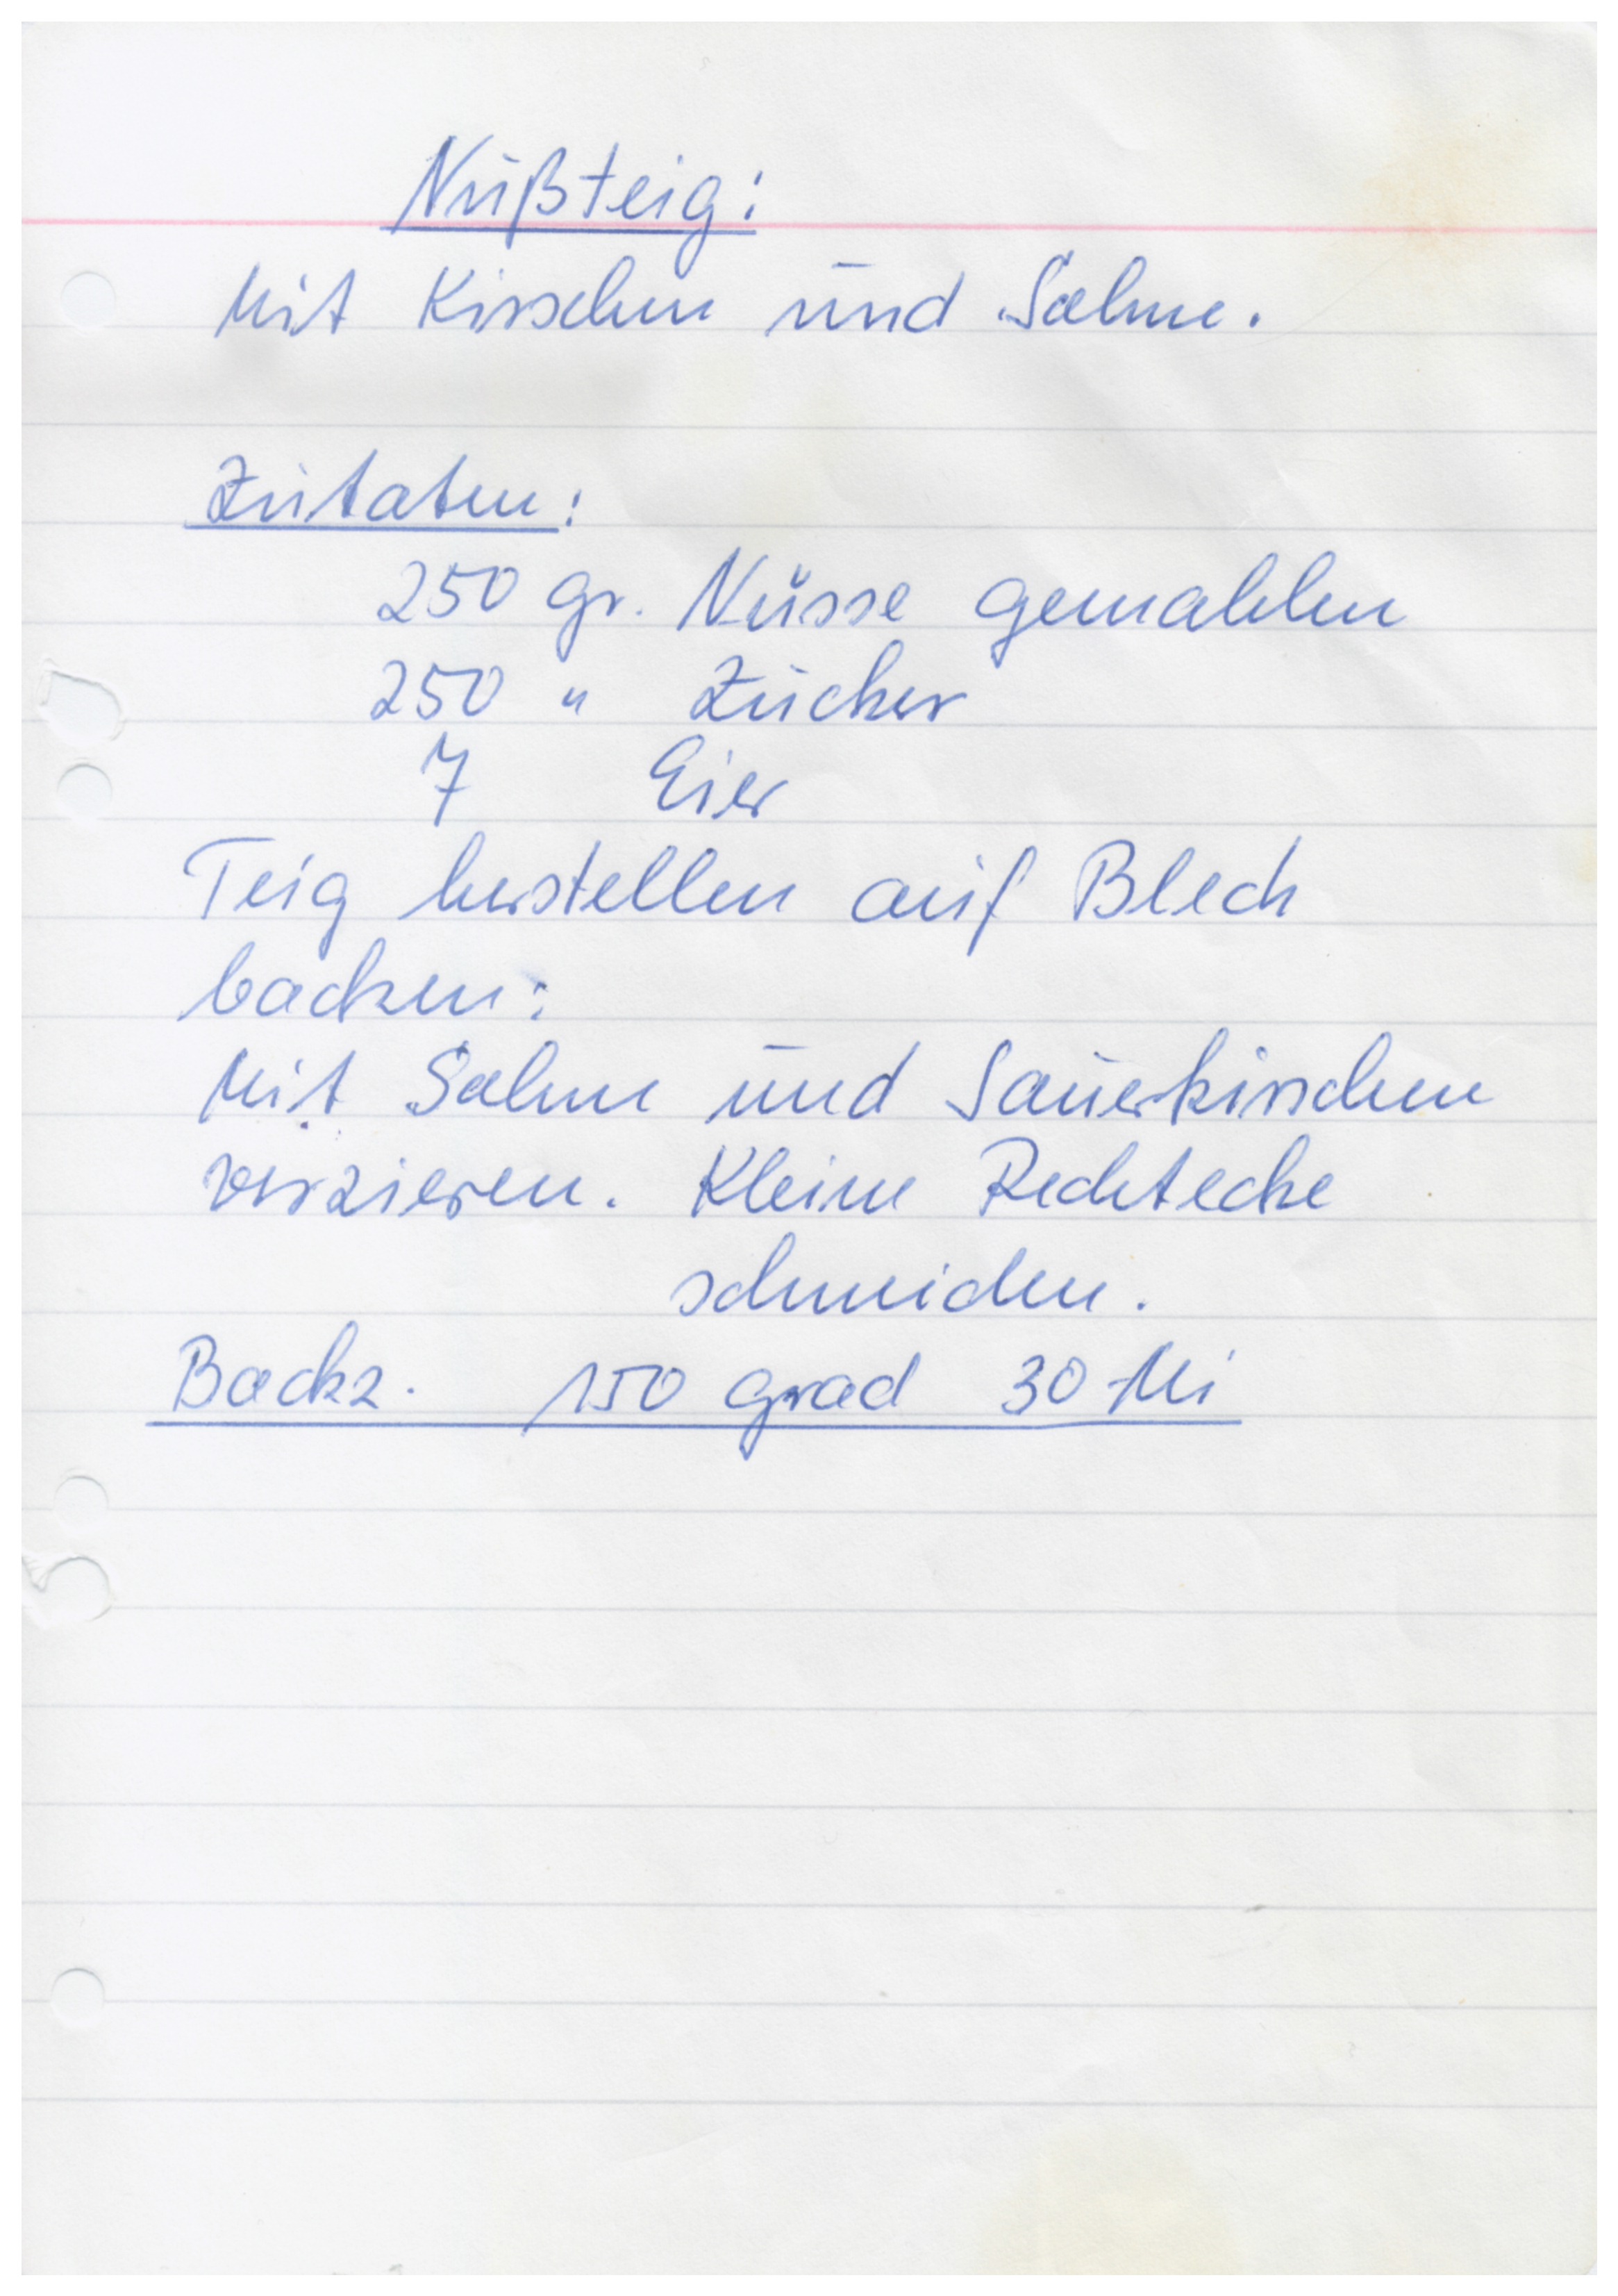 Nußteig:
Mit Kirschen und Sahne.
Zutaten:
250 gr. Nüsse gemahlen
250 " Zucker
7 Eier
Teig herstellen auf Blech
backen:
Mit Sahne und Sauerkirschen
verzieren. Kleine Rechtecke
schneiden.
Backz. 150 grad 30 Mi